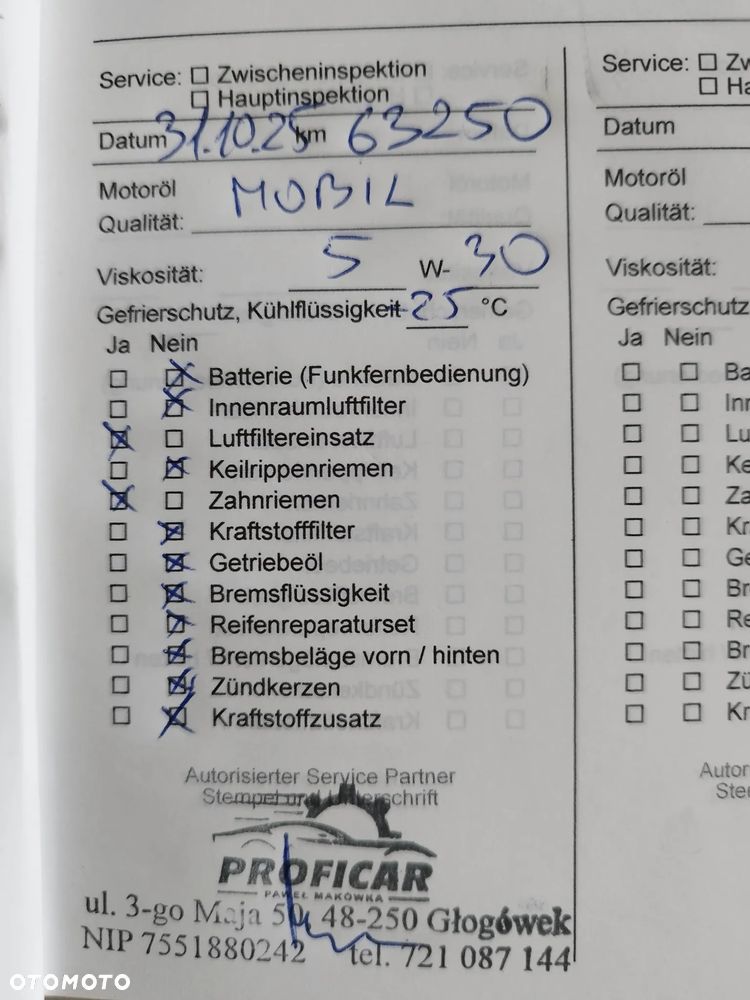 Service: ☐ Zwischeninspektion
☐ Hauptinspektion
Datum 31.10.25 km 63250
Motoröl
Qualität: MOBIL
Viskosität: 5 W- 30
Gefrierschutz, Kühlflüssigkeit -25 °C
Ja Nein
☐ ☒ Batterie (Funkfernbedienung)
☐ ☒ Innenraumluftfilter
☒ ☐ Luftfiltereinsatz
☐ ☒ Keilrippenriemen
☒ ☐ Zahnriemen
☐ ☒ Kraftstofffilter
☐ ☒ Getriebeöl
☐ ☒ Bremsflüssigkeit
☐ ☒ Reifenreparaturset
☐ ☒ Bremsbeläge vorn / hinten
☐ ☒ Zündkerzen
☐ ☒ Kraftstoffzusatz
Autorisierter Service Partner
Stempel und Unterschrift
PROFICAR
PAWEŁ MAKÓWKA
ul. 3-go Maja 50, 48-250 Głogówek
NIP 7551880242 tel. 721 087 144
Service: ☐ Zw
☐ Ha
Datum
Motoröl
Qualität:
Viskosität:
Gefrierschutz
Ja Nein
☐ ☐ Ba
☐ ☐ Inn
☐ ☐ Lu
☐ ☐ Ke
☐ ☐ Za
☐ ☐ Kr
☐ ☐ Ge
☐ ☐ Br
☐ ☐ Re
☐ ☐ Br
☐ ☐ Zü
☐ ☐ Kr
Autor
Ste
OTOMOTO